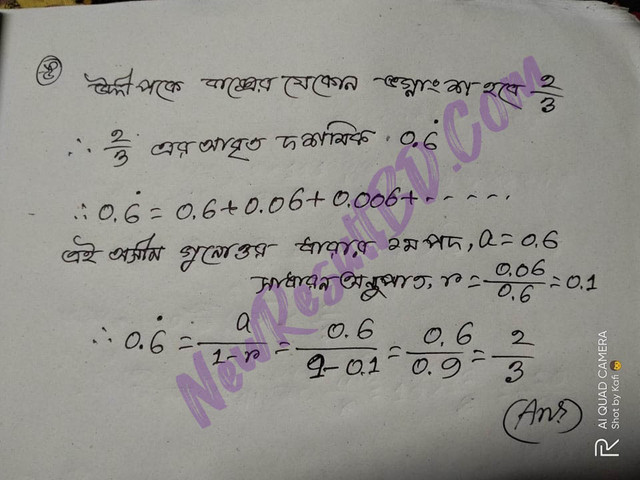 (ঙ) উদ্দীপকে বাক্সের যেকোন ভগ্নাংশ হবে 2/3
∴ 2/3 এর আবৃত দশমিক 0.6̇
∴ 0.6̇ = 0.6 + 0.06 + 0.006 + - - - - .
এই অসীম গুনোত্তর ধারার ১ম পদ, a = 0.6
সাধারন অনুপাত, r = 0.06/0.6 = 0.1
∴ 0.6̇ = a/1-r = 0.6/1-0.1 = 0.6/0.9 = 2/3
(Ans)
NewResultBD.Com
AI QUAD CAMERA
Shot by Kafi